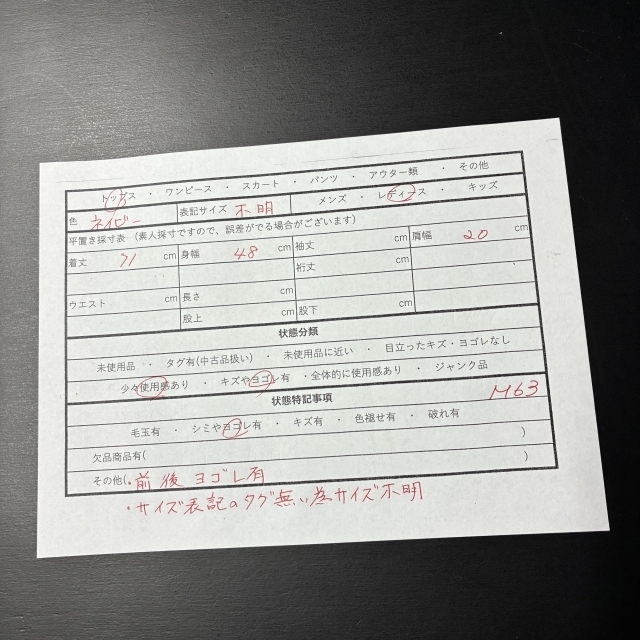 トップス ・ ワンピース ・ スカート ・ パンツ ・ アウター類 ・ その他
色 ネイビー 表記サイズ 不明 メンズ ・ レディース ・ キッズ
平置き採寸表 (素人採寸ですので、誤差がでる場合がございます)
着丈 71 cm 身幅 48 cm 袖丈 cm 肩幅 20 cm
裄丈 cm
ウエスト cm 長さ cm
股上 cm 股下 cm
状態分類
未使用品 ・ タグ有(中古品扱い) ・ 未使用品に近い ・ 目立ったキズ・ヨゴレなし
少々使用感あり ・ キズやヨゴレ有 ・全体的に使用感あり ・ ジャンク品
状態特記事項 M63
毛玉有 ・ シミやヨゴレ有 ・ キズ有 ・ 色褪せ有 ・ 破れ有
欠品商品有( )
その他(・前後ヨゴレ有 )
・サイズ表記のタグ無い為サイズ不明